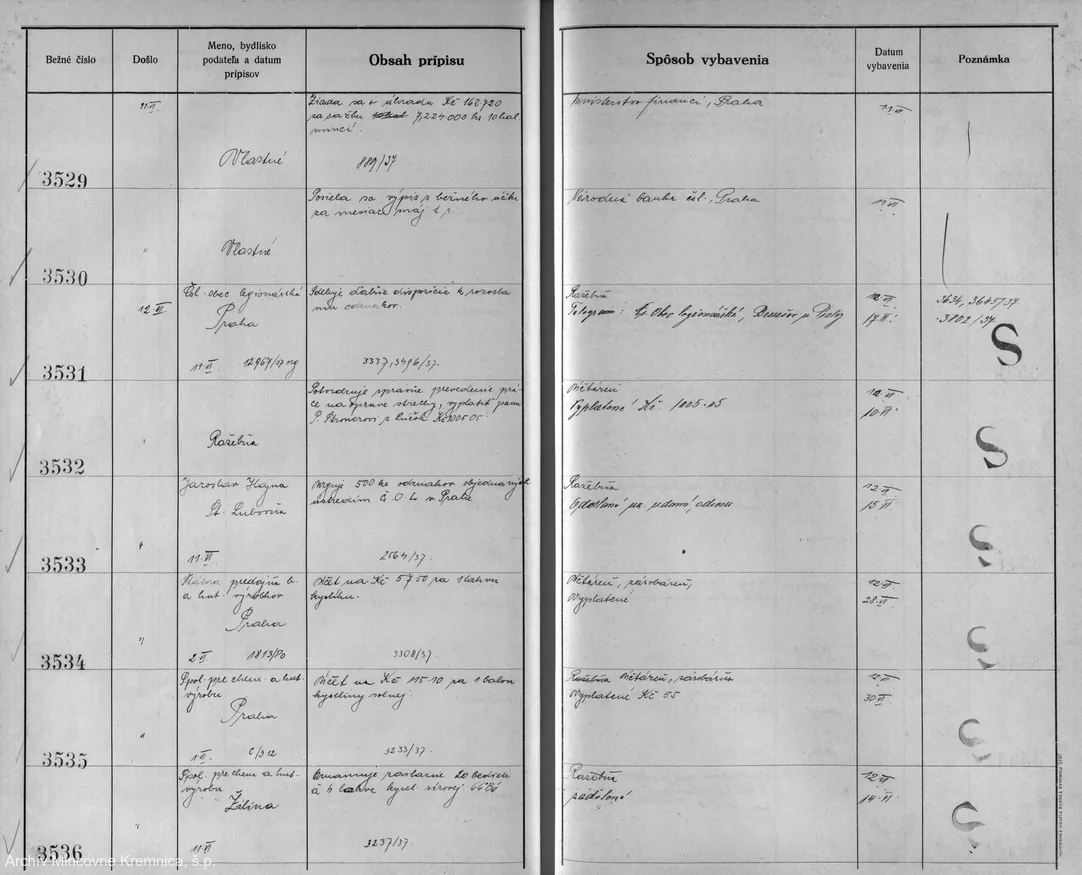 Bežné číslo
Došlo
Meno, bydlisko
podateľa a datum
prípisov
Obsah prípisu
Spôsob vybavenia
Datum
vybavenia
Poznámka
11.VI.
Žiada sa o úhradu Kč 162.720
za ražbu 7,224.000 ks 10 hal
mincí.
Vlastné
889/37
3529
Ministerstvo financí, Praha
11.VI.
Posiela sa výpis z bežného účtu
za mesiac máj t. r.
"
Vlastné
3530
Národná banka čsl., Praha
11.VI.
12 VI
Čsl. obec legionárská
Praha
11.VI. 12967/37
Sdeluje ďalšie dispozície k rozosla
niu odznakov.
3337, 3496/37
3531
Razebňa
Telegram: Čs. Obec legionářská,
12.VI.
17.VI.
3634, 3645/37
3802/37
S
Potvrdzuje správne prevedenie prá-
ce na oprave strechy, vyplatiť pánu
"
Razebňa
3532
Účtáreň
Vyplatené Kč. 1005.05
12.VI.
10.VI.
S
Jaroslav Hajna
St. Ľubovňa
"
11.VI.
Urguje 500 ks odznakov objednaných
ústredím Č. O. L. v Prahe
2564/37.
3533
Razebňa
Odoslané na udanú adresu
12.VI.
15.VI.
S
predajňa b.
a hut. výrobkov
Praha
"
2.VI. 1813/Po
Účet na Kč 57.50 za 1 lahvu
kyslíku.
3308/37.
3534
Účtáreň, zásobáreň,
Vyplatené
12.VI.
28.VI.
S
Spol. pre chem. a hut.
výrobu
Praha
"
1.VI. C/312
Účet na Kč 115.10 za 1 balon
kyseliny solnej.
3233/37.
3535
Razebňa Účtáreň, zásobáreň
Vyplatené Kč 55
12.VI.
30.VI.
S
Spol. pre chem a hut.
výrobu
Žilina
"
11.VI.
zaslanie 20
kysel. sírovej 66 Bé
3237/37
3536
Razebňa
12.VI.
14.VI.
S
Archív Mincovne Kremnica, š.p.